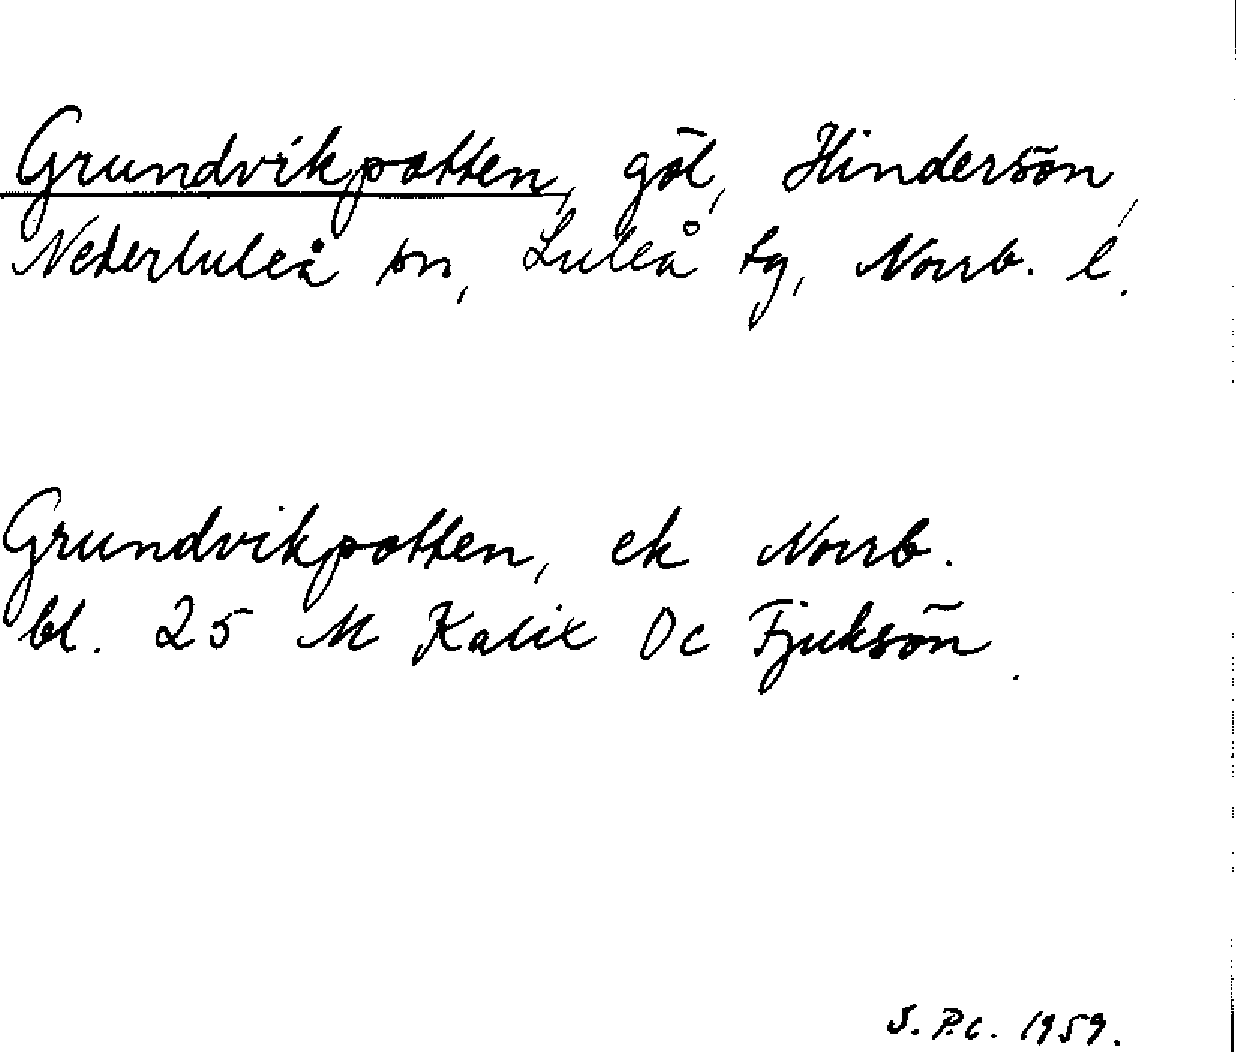 Grundvikpotten, göl, Hindersön,
Nederluleå sn, Luleå tg, Norrb. l.
Grundvikpotten, ek Norrb.
bl. 25 M Kalix Dc Fjuksön.
S.P.C. 1959.